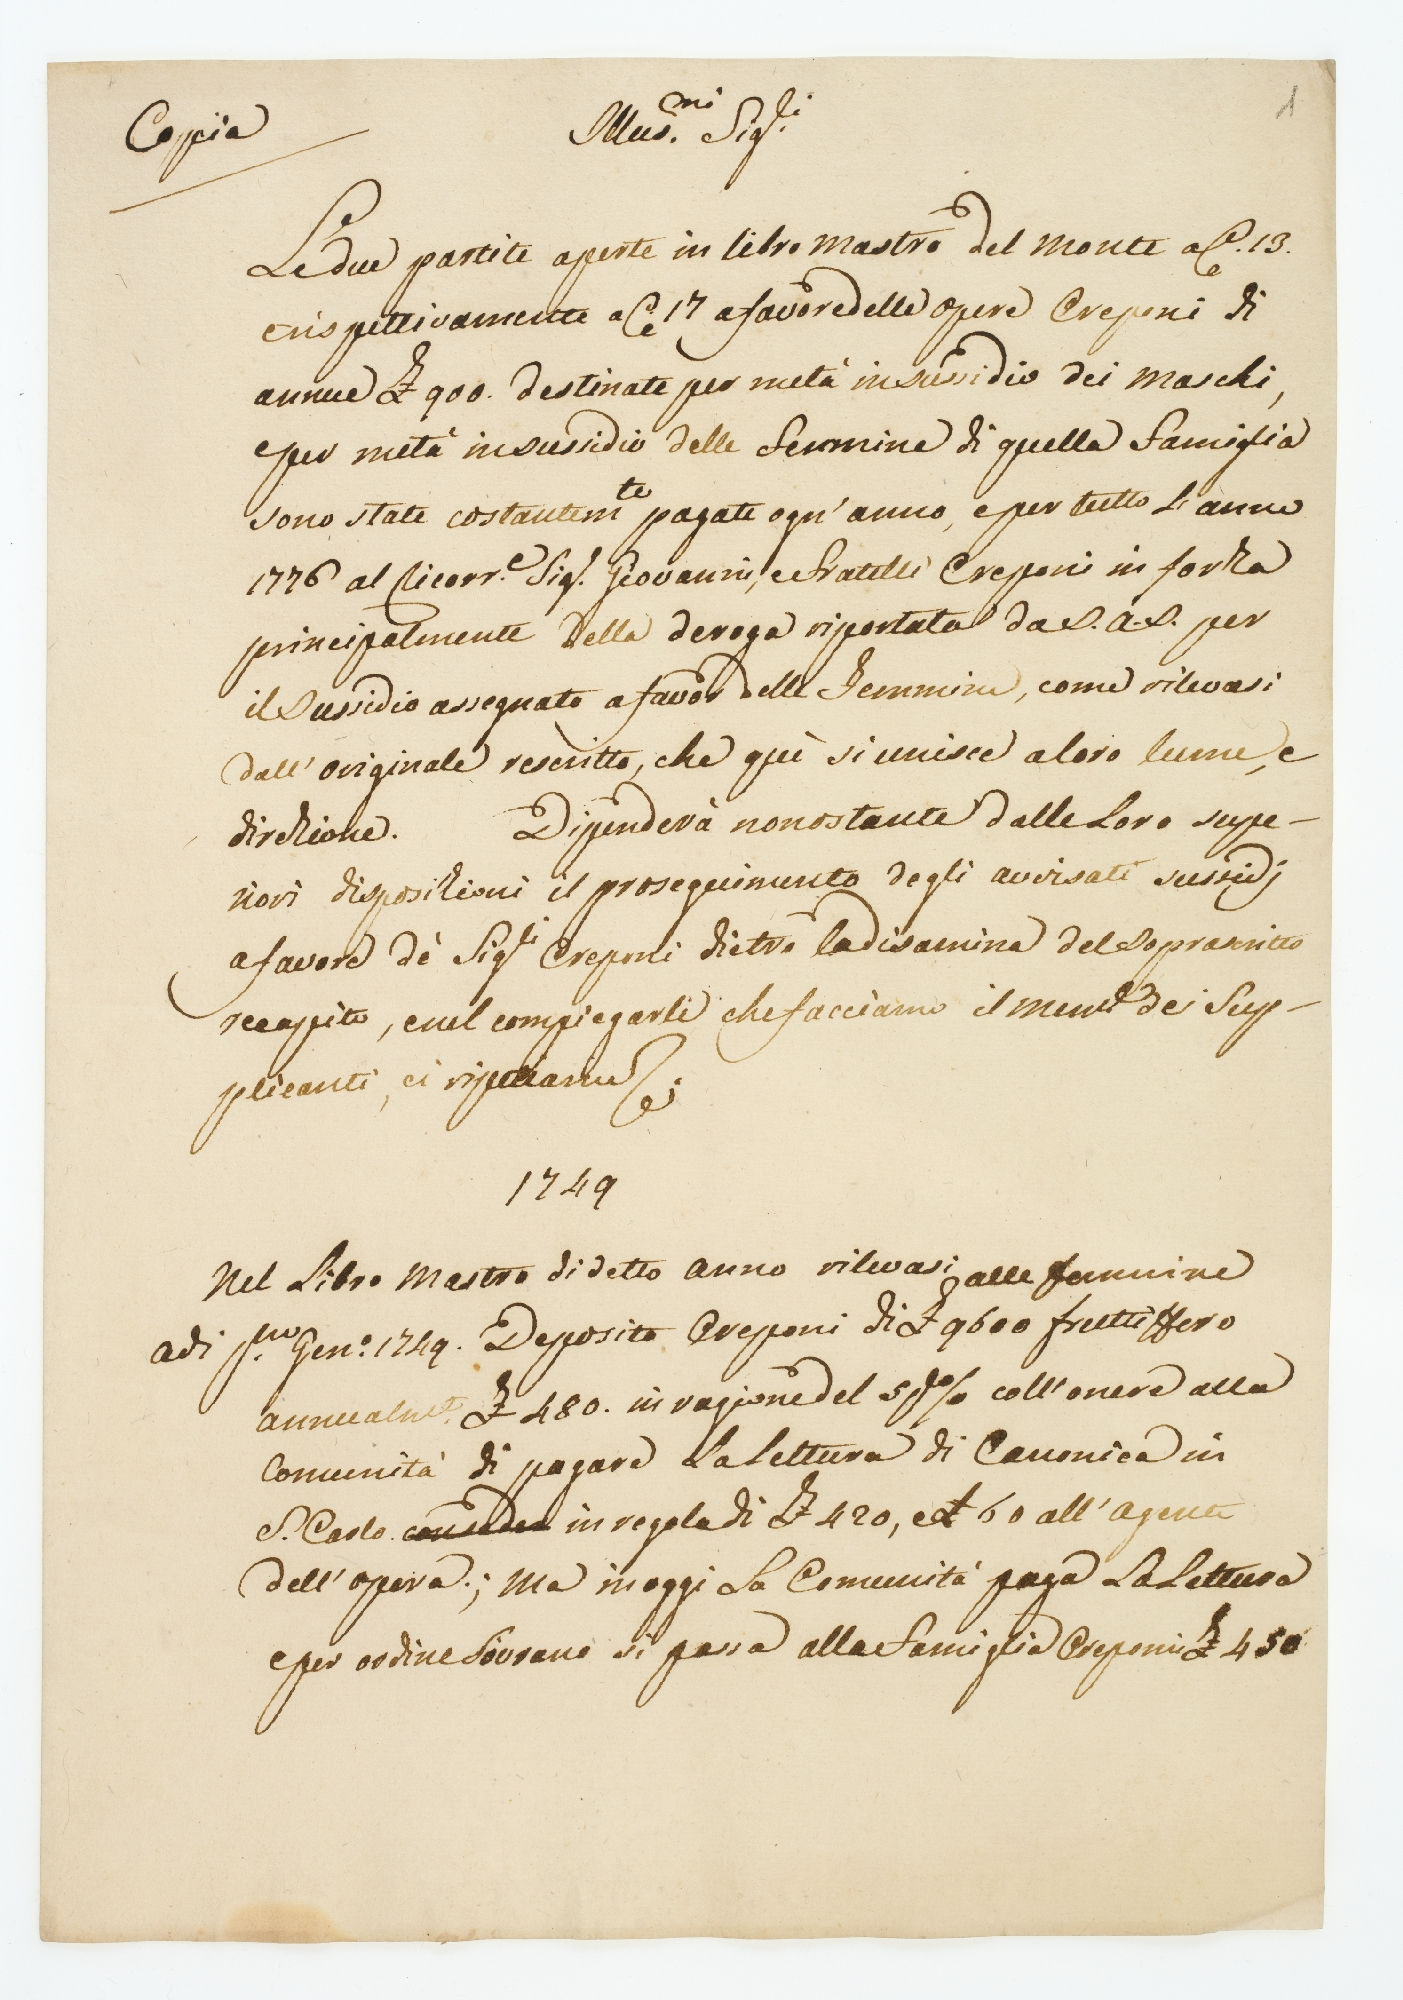 1
Copia
Illus.mi Sig.ri
Le due partite aperte in libro Mastro del Monte a Ce. 13.
e rispettivamente a Ce 17 a favore delle opere Creponi di
annue £ 900. destinate per metà in sussidio dei Maschi,
e per metà in sussidio delle Femmine di quella Famiglia
sono state costantemte pagate ogn' anno, e per tutto L'anno
1776 al Ricorr.e Sig.r Giovanni, e Fratelli Creponi in forza
principalmente della deroga riportata da S. A. S. per
il Sussidio assegnato a favor delle Femmine, come rilevasi
dall' originale rescritto, che quì si unisce a loro lume, e
direzione. Dipenderà nonostante dalle Loro supe-
riori disposizioni il proseguimento degli avvisati sussidj
a favore dè Sig.ri Creponi dietro la disamina del Soprascritto
recapito, e nel compiegarli che facciamo il Mem.le dei Sup-
plicanti, ci ripetiamo
1749
Nel Libro Mastro di detto anno rilevasi alle femmine
adi p.mo Gen.o 1749. Deposito Creponi di £ 9600 fruttiffero
annualm.te £ 480. in ragione del 5 p% coll' onere alla
Comunità di pagare La Lettura di Canonica in
S. Carlo in regola di £ 420, e £ 60 all' Agente
dell' opera.; Ma in oggi La Comunità paga La Lettura
e per ordine Sovrano si passa alla Famiglia Creponi £ 450